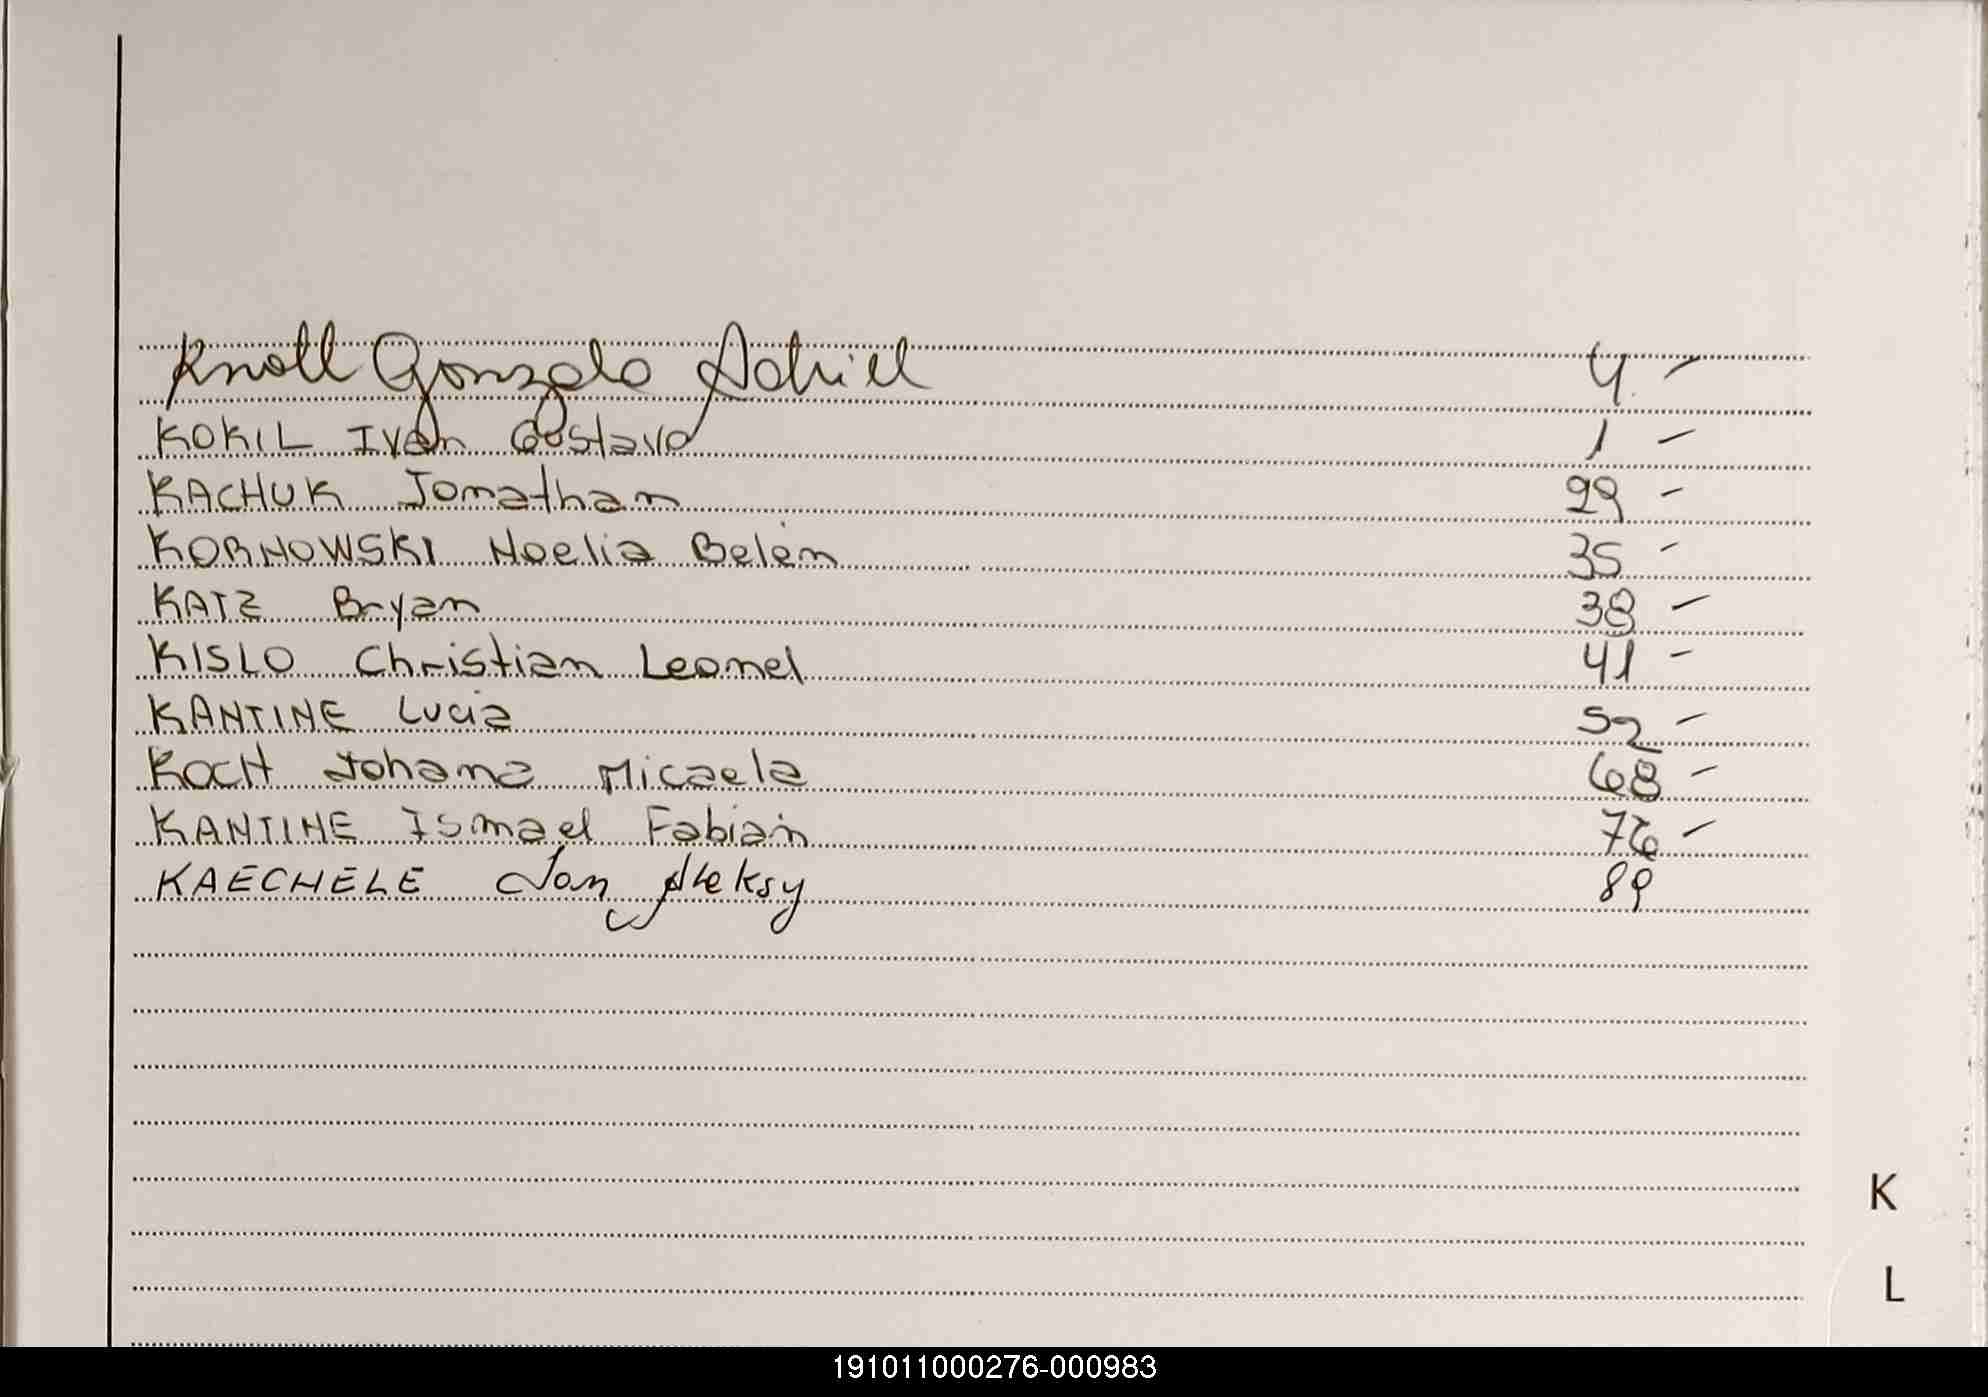 Knoll Gonzalo Adriel 4 -
KOKIL Ivan Gustavo 1 -
KACHUK Jonathan 29 -
KORNOWSKI Noelia Belén 35 -
KATZ Bryan 38 -
KISLO Christian Leonel 41 -
KANTINE Lucia 52 -
KOCH Johana Micaela 68 -
KANTINE Ismael Fabián 76 -
KAECHELE Jan Aleksy 89
K
L
191011000276-000983